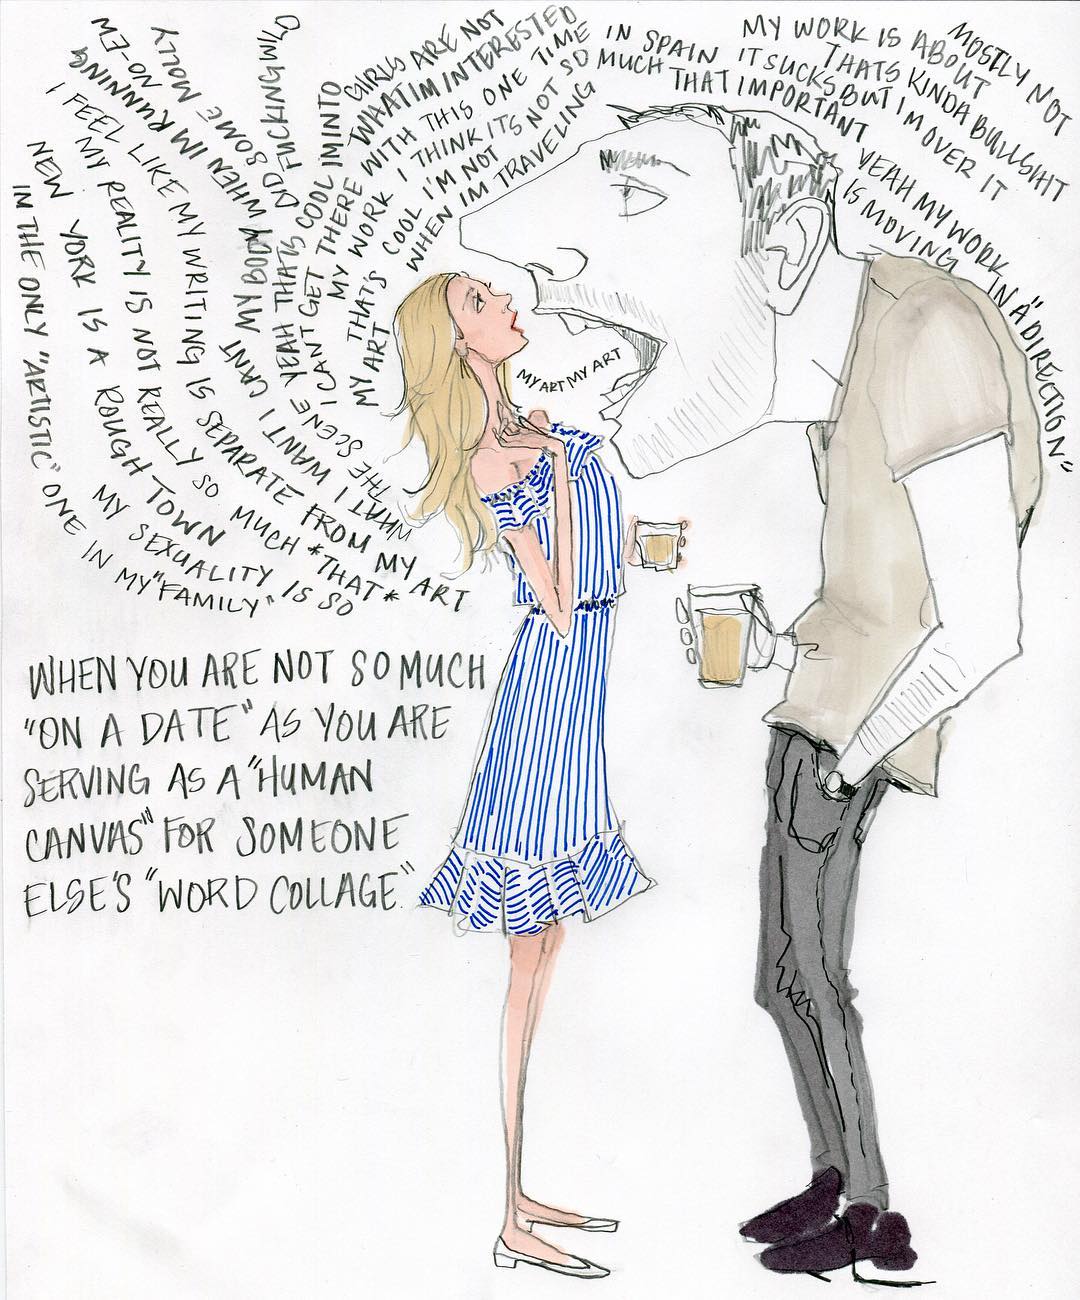 IN THE ONLY "ARTISTIC" ONE IN MY "FAMILY"
NEW YORK IS A ROUGH TOWN
MY SEXUALITY IS SO
MY REALITY IS NOT REALLY SO MUCH *THAT*
I FEEL LIKE MY WRITING IS SEPARATE FROM MY ART
WHAT I WANT I CANT MY BODY WHEN IM RUNNING
NO-EM
DID SOME MOLLY
FUCKING WILD
THE SCENE YEAH THATS COOL IM INTO
GIRLS ARE NOT
WHAT IM INTERESTED
I CANT GET THERE WITH THIS ONE TIME IN SPAIN
MY WORK I THINK ITS NOT SO MUCH THAT IMPORTANT
THATS COOL I'M NOT
MY ART WHEN IM TRAVELING
MY WORK IS ABOUT
MOSTLY NOT
THATS KINDA BULLSHIT
IT SUCKS BUT I'M OVER IT
YEAH MY WORK IN A "DIRECTION"
IS MOVING
MY ART MY ART
WHEN YOU ARE NOT SO MUCH
"ON A DATE" AS YOU ARE
SERVING AS A "HUMAN
CANVAS" FOR SOMEONE
ELSE'S "WORD COLLAGE"